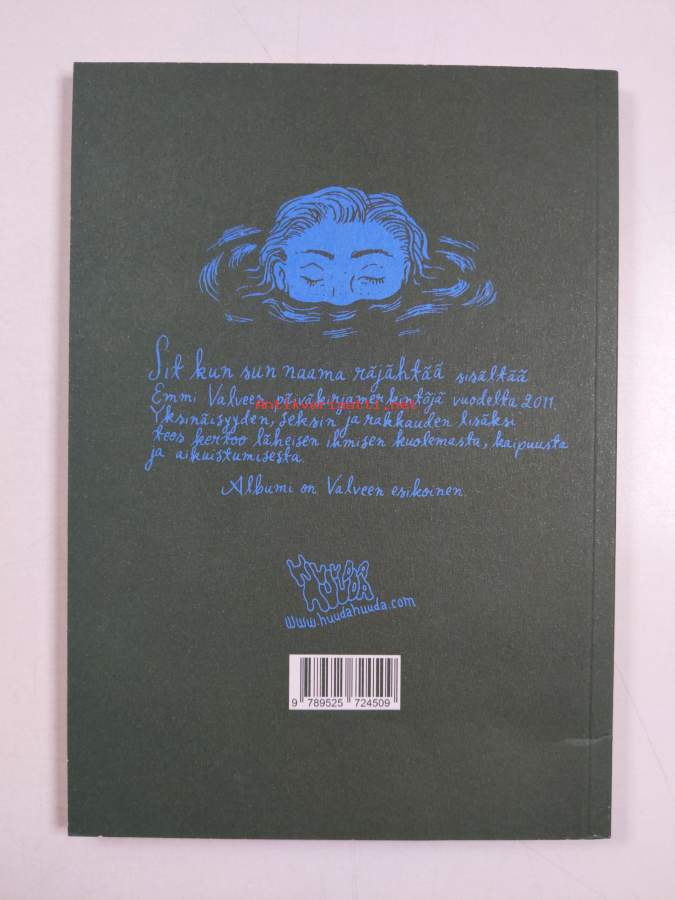 Sit kun sun naama räjähtää sisältää
Emmi Valveen päiväkirjamerkintöjä vuodelta 2011.
antikvariaatti.net
Yksinäisyyden, seksin ja rakkauden lisäksi
teos kertoo läheisen ihmisen kuolemasta, kaipuusta
ja aikuistumisesta.
Albumi on Valveen esikoinen.
HUUDA
HUUDA
www.huudahuuda.com
9 789525 724509